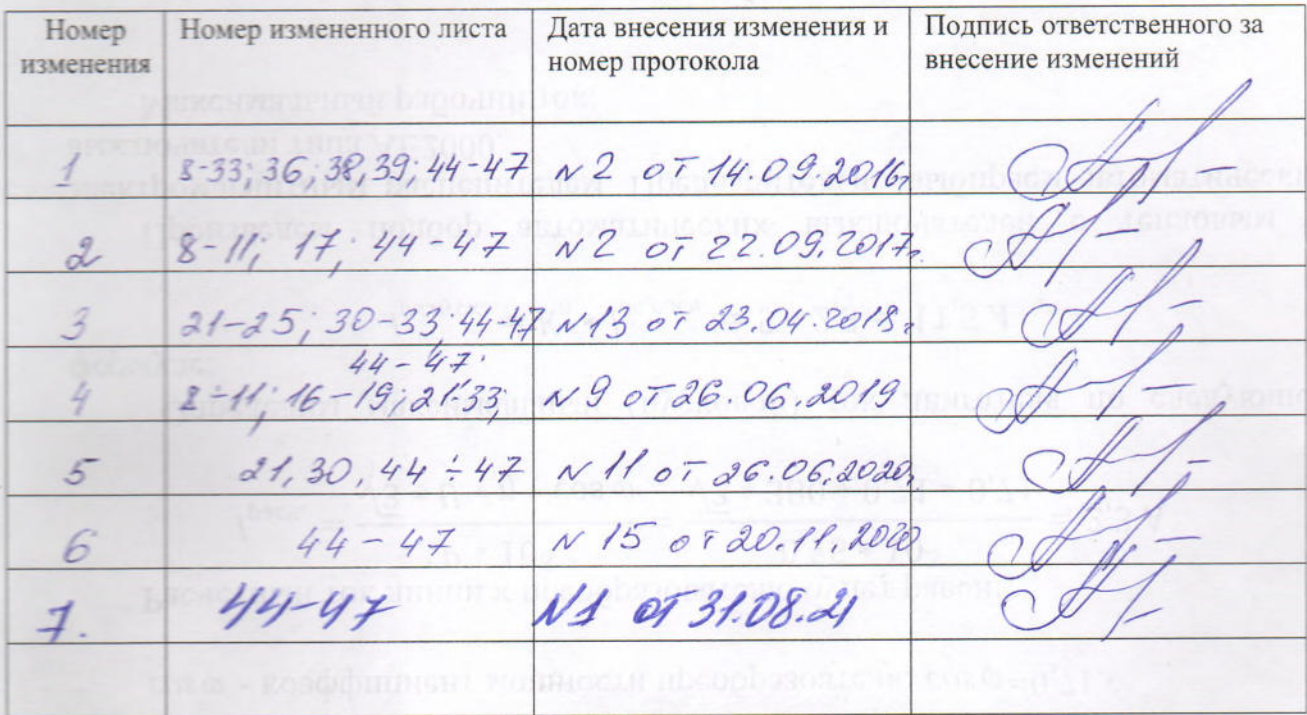 Номер изменения Номер измененного листа Дата внесения изменения и номер протокола Подпись ответственного за внесение изменений
1 8-33; 36; 38, 39; 44-47 №2 от 14.09.2016г.
2 8-11; 17; 44-47 №2 от 22.09.2017г.
3 21-25, 30-33, 44-47 №13 от 23.04.2018г.
44-47
4 8-11; 16-19; 21-33; №9 от 26.06.2019
5 21, 30, 44-47 №11 от 26.06.2020
6 44-47 №15 от 20.11.2020
7. 44-47 №1 от 31.08.21